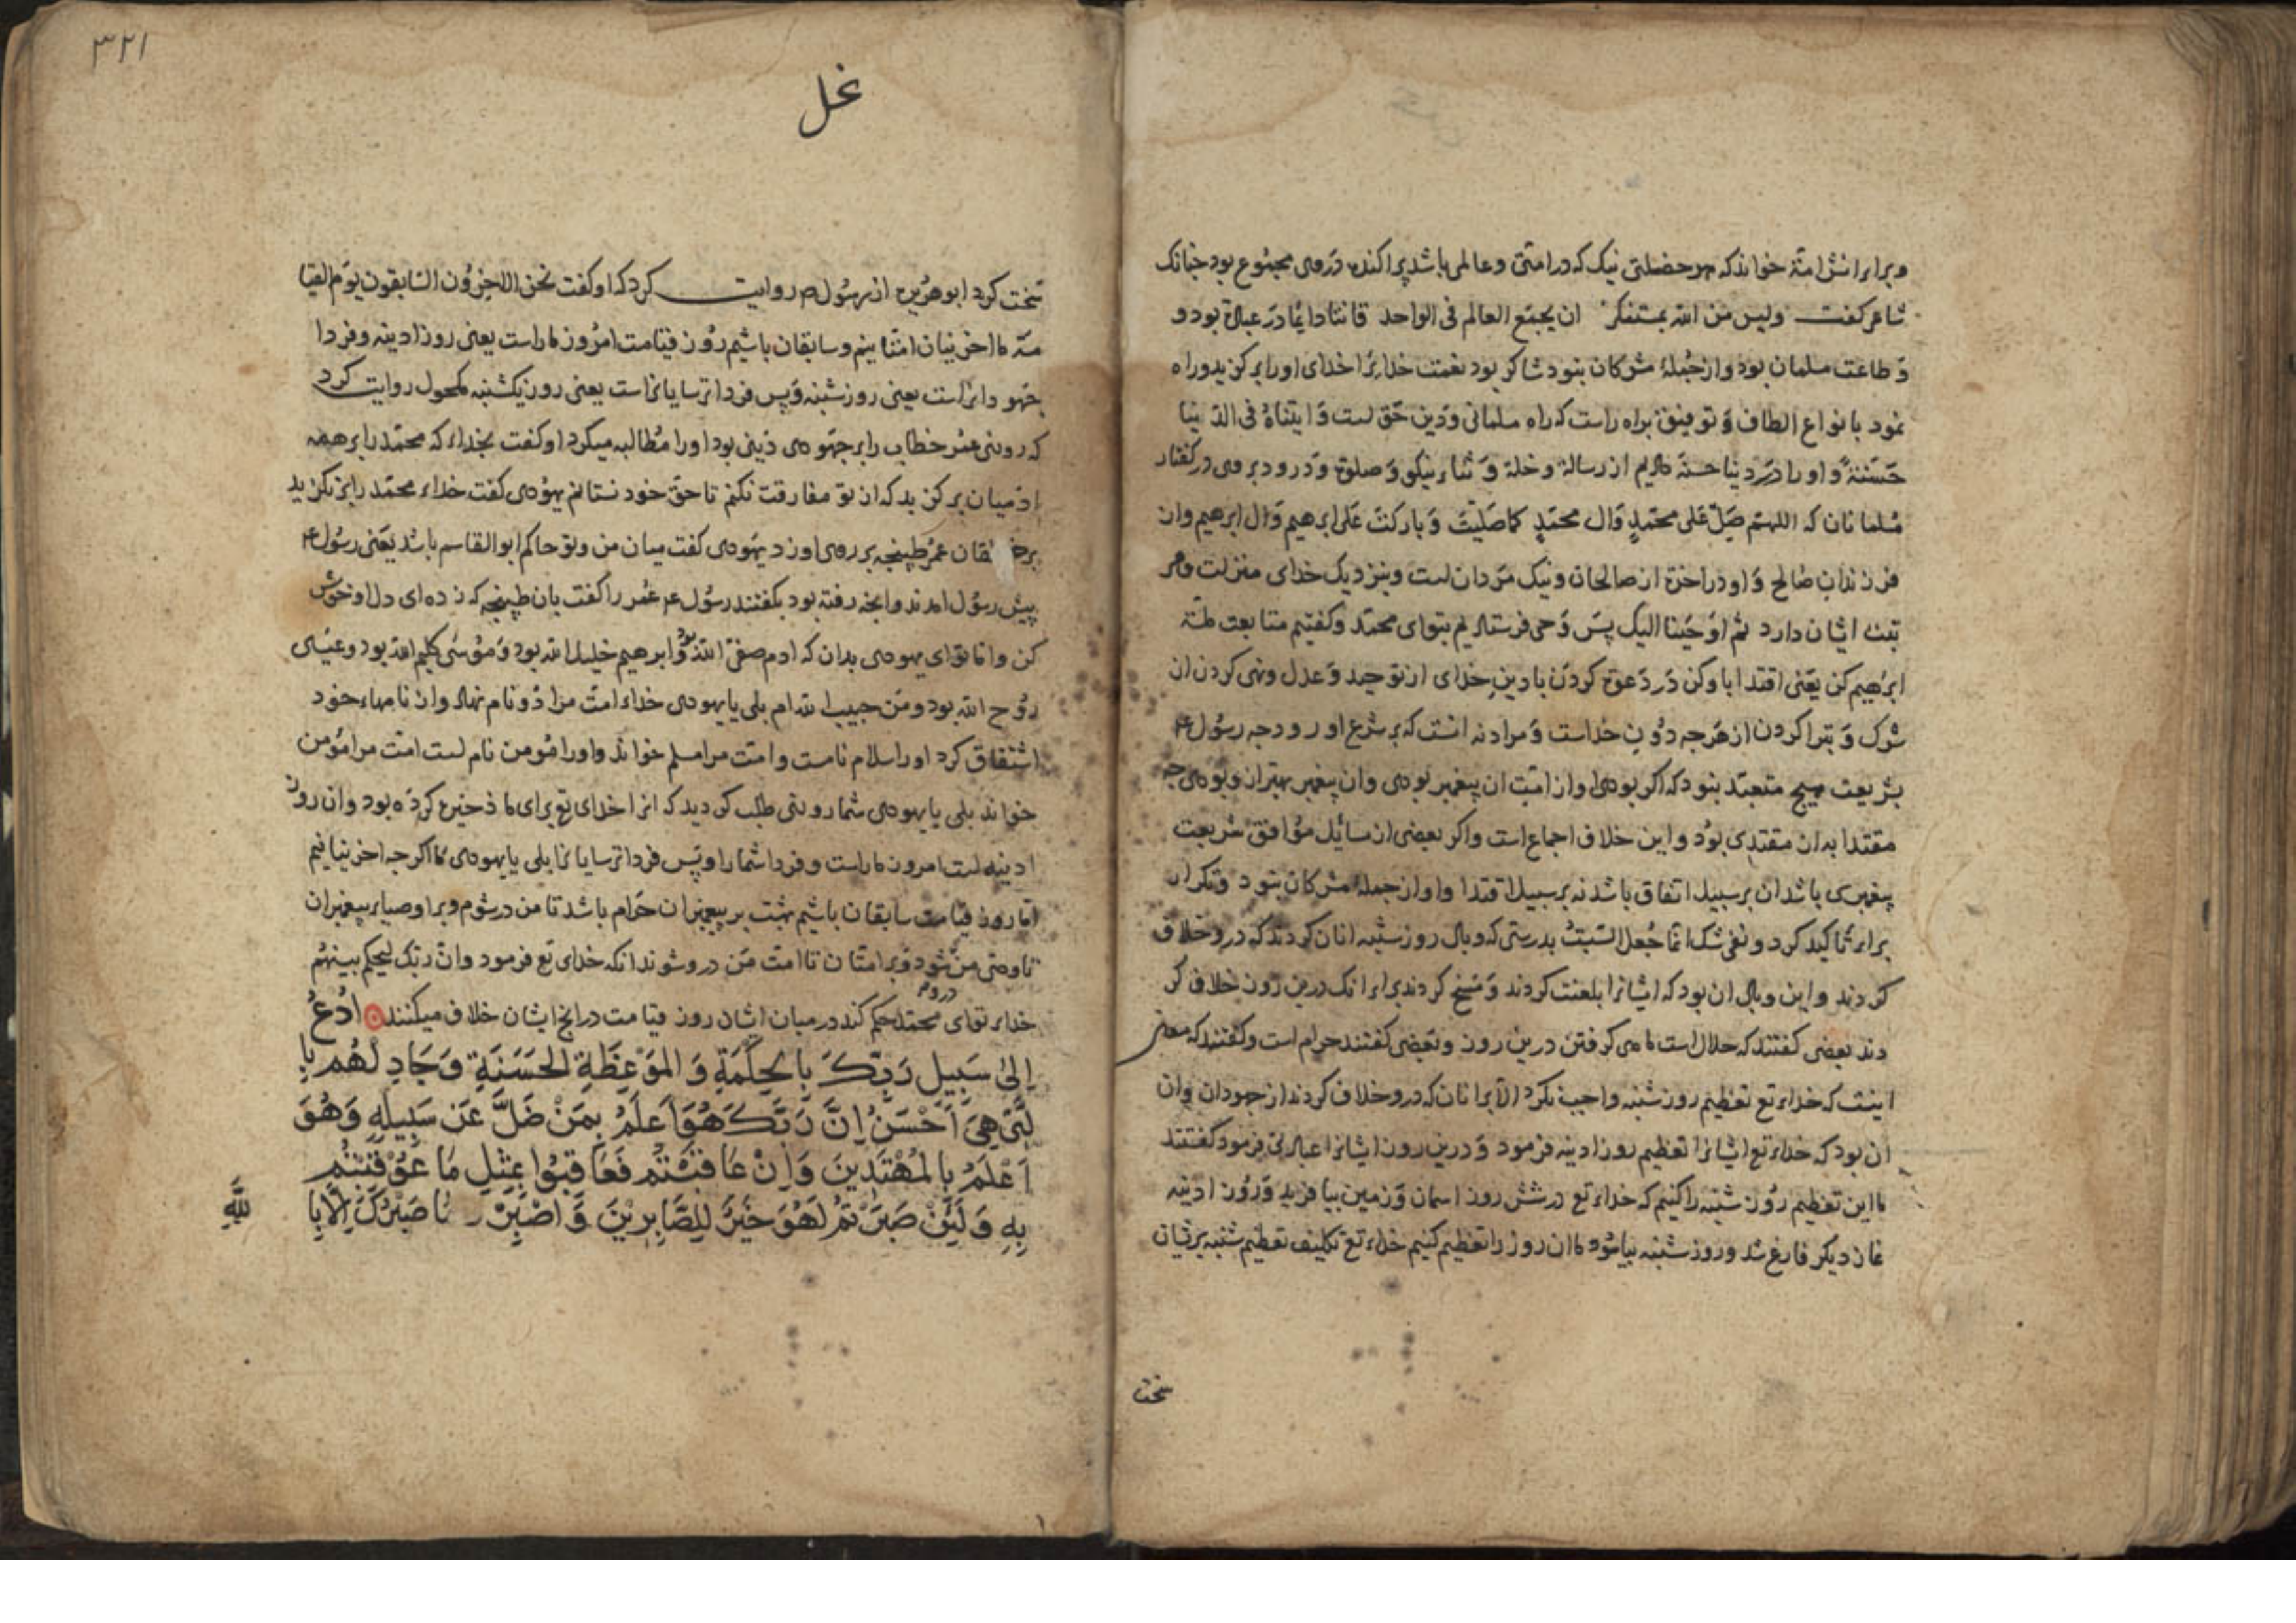 و برای انش امة خواند که هر خصلتی نیک که در امتی و عالمی باشد پراکنده در وی مجموع بود جنانک
شاعر کفت ولیس من الله بمستنکر ان یجمع العالم فی الواحد قانتا دایما در عبادة بود و
و طاعت مسلمان بود و از جملهٔ مشرکان نبود شاکر بود نعمت خدایرا خدای او را برکزید و راه
نمود بانواع الطاف و توفیق براه راست که راه مسلمانی و دین حق است وَ اٰتیناهُ فی الدّنیا
حَسَنَةً و او را در دنیا حسنه دادیم از رسالة و خلة و ثناء نیکو و صلوة و درود بر وی در کفتار
مسلمانان که اللهم صَلّ عَلی محمّدٍ وَال محمّدٍ کما صَلَیتَ وَ بارکتَ عَلی ابرهیم وَال ابرهیم و ان
فرزندان صالح وَ او در اخرة از صالحان و نیک مردان است و بنزدیک خدای منزلت و مر
تبت ایشان دارد ثم اوحَینا الیک پسَ وَحی فرستادیم بتو ای محمّد و کفتیم متابعت ملة
ابرٰهیم کن یَعنی اقتدا باو کن دَر دَعوة کردَن با دینِ خدای از توحید وَ عدل و نهی کردن از
شرک وَ تبرا کردن از هَرجه دُونِ خداست وَ مراد نه انست که بر شرع او رود جه رسُول ع
بشریعت هیج متعبّد نبود که اکر بودی او از امّت ان پیغمبر بودی و ان پیغمبر بهتر از و بودی جه
مقتدا به از مقتدی بوُد و این خلاف اجماع است و اکر بعضی از مسائل موُافق شریعت
پیغمبری باشد ان بر سبیل اتفاق باشد نه بر سبیل اقتدا و او از جملهٔ مشرکان نبود و تکرار
براء تاکید کرد و نفی شک انمّا جُعِلَ السّبتُ بدرستی که وبال روز شنبه بر انان کردند که در و خلاف
کردند و این وبال ان بود که ایشانرا بلعنت کردند وَ مَسخ کردند برای انک درین روز خلاف کر
دند بعضی کفتند که حلال است ماهی کرفتن درین روز و بعَضی کفتند حرام است و کفتند که معنی
اینست که خداء تع تعظیم روز شنبه واجب نکرد الّا بر انان که در و خلاف کردند از جهودان و ان
ان بود که خداء تع ایشانرا تعظیم روز ادینه فرمود وَ درین روز ایشانرا عبادتی فرمود کفتند
ما این تعظیم روُز شنبه را کنیم که خداء تع در شش روز اسمان وَ زمین بیافرید وَ روُز ادینه
فارغ شد و روز شنبه بیاسود ما ان روز را تعظیم کنیم خداء تع تکلیف تعظیم شنبه بر ایشان
سخت
٣٢١
نحل
سَخت کرد ابو هُریره از رسُول ص روایت کرد که او کفت نحن الاخِروُن السّابقون یوَم القیا
مَة ما اخرینیان امتّانیم و سابقان باشیم روُز قیامت امرُوز ما راست یعنی روز ادینه و فردا
جَهودانراست یعنی روز شنبه وَ پس فردا ترسایانراست یعنی روز یکشنبه مکحول روایت کرد
که روزی عمر خطاب را بر جهوَدی دَینی بود او را مُطالبه میکرد او کفت بخدای که محمّد را بر همه
ادَمیان برکزید که از تو مفارقت نکنم تا حق خود نستانم یهوُدی کفت خداء محمّد را بر نکزید
عمُر طپنجه بر روی او زد یهَودی کفت میان من و تو حاکم ابو القاسم باشد یَعنی رسوُل ع
پیش رسوُل امدند و انجه رفته بود بکفتند رسوُل ع عمُر را کفت بان طپنجه که زده ای دل او خوش
کن و اما تو ای یهودی بدان که ادم صفیّ الله بود وَ ابرهیم خلیل الله بود وَ موُسی کلیم الله بود و عیسٰی
روُح الله بود و من حبیب الله ام بلی یا یهودی خداء امت مرا دو نام نهاد و از نامهاء خود
اشتقاق کرد او را سلام نامست و امّت مرا مسلم خواند و او را موُمن نام است امّت مرا موُمن
خواند بلی یا یهودی شما روزی طلب کردید که انرا خدای تع برای ما ذخیره کردَه بود و ان روز
ادینه است امروز ما راست و فردا شما را و پَس فردا ترسایانرا بلی یا یهودی ما اکرجه اخرینیانیم
اما روز قیامت سابقان باشیم بهشت بر پیغمبران حَرام باشد تا من در شوم و بر اوصیاء پیغمبران
تا وصی من شود وَ بر امتان تا امت من در و شوند انکه خدای تع فرمود و انّ ربّک لیحکم بینهُم
خداء تو ای محمّد حکم کند در میان ایشان روز قیامت در انج ایشان خلاف میکنند اُدْعُ
اِلیٰ سَبِیلِ رَبِّکَ بِالحِکْمَةِ وَ المَوْعِظَةِ الحَسَنَةِ وَجَادِلْهُم بِا
لَّتی هِیَ اَحْسَنُ اِنَّ رَبَّکَ هُوَ اَعلَمُ بِمَنْ ضَلَّ عَن سَبِیلِهِ وَهُوَ
اَعْلَمُ بِالمُهْتَدِینَ وَاِنْ عَاقَبْتُم فَعَاقِبُوا بِمِثْلِ مَا عُوْقِبْتُم
بِهِ وَلَئِنْ صَبَرْتُمْ لَهُوَ خَیْرٌ لِلصَّابِرِیْنَ وَاصْبِرْ وَمَا صَبْرُکَ اِلَّا بِا
للَّهِ